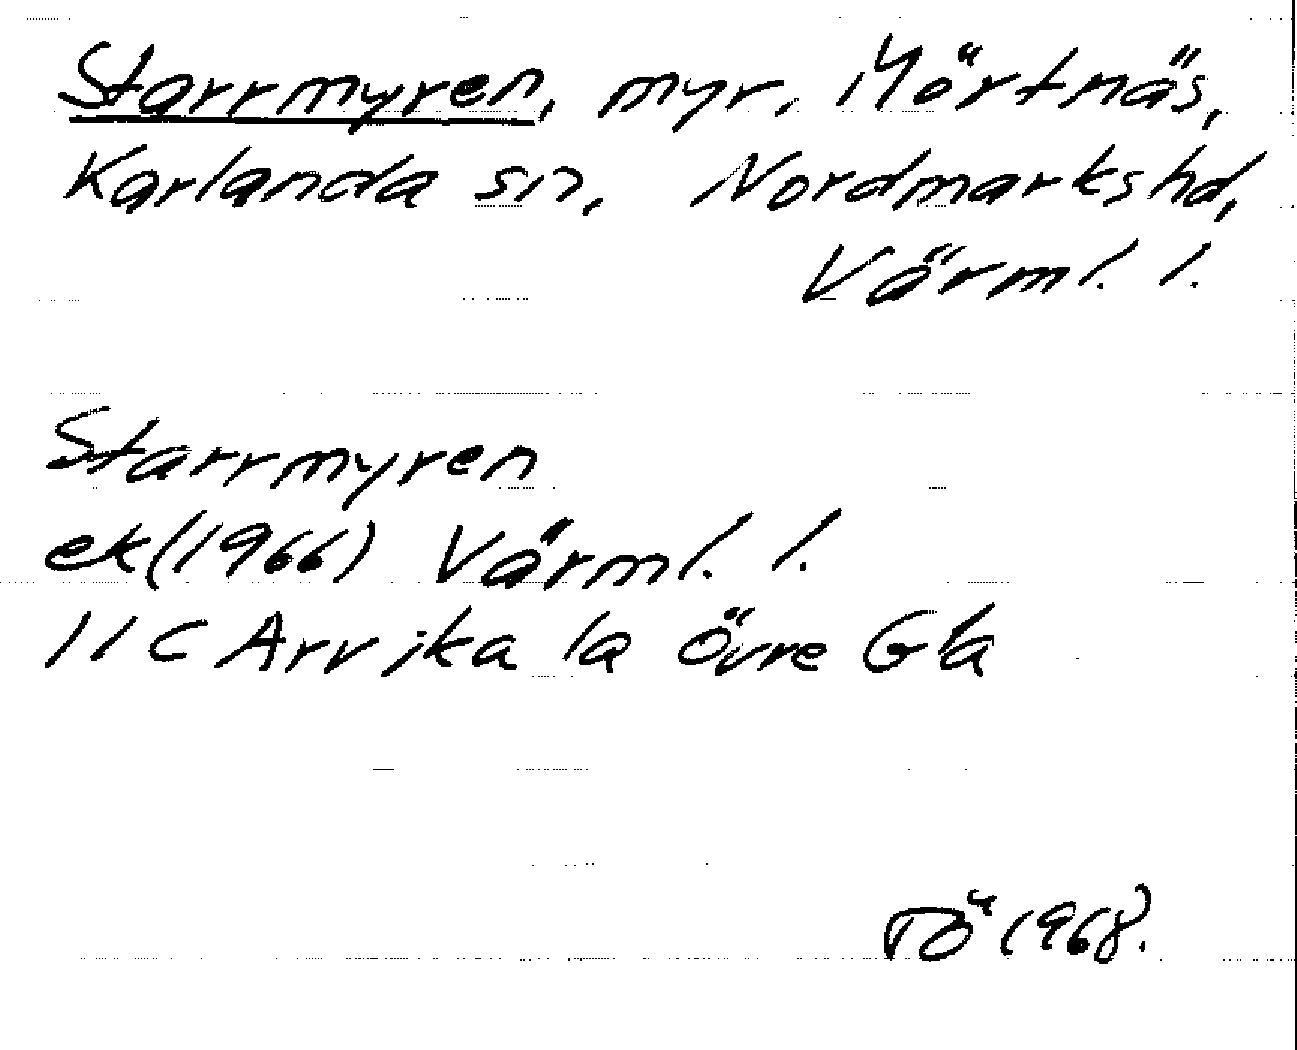 Starrmyren, myr, Mörtnäs,
Karlanda sn, Nordmarks hd,
Värml. l.
Starrmyren
ek (1966) Värml. l.
11C Arvika 1a Övre Gla
TÖ 1968.